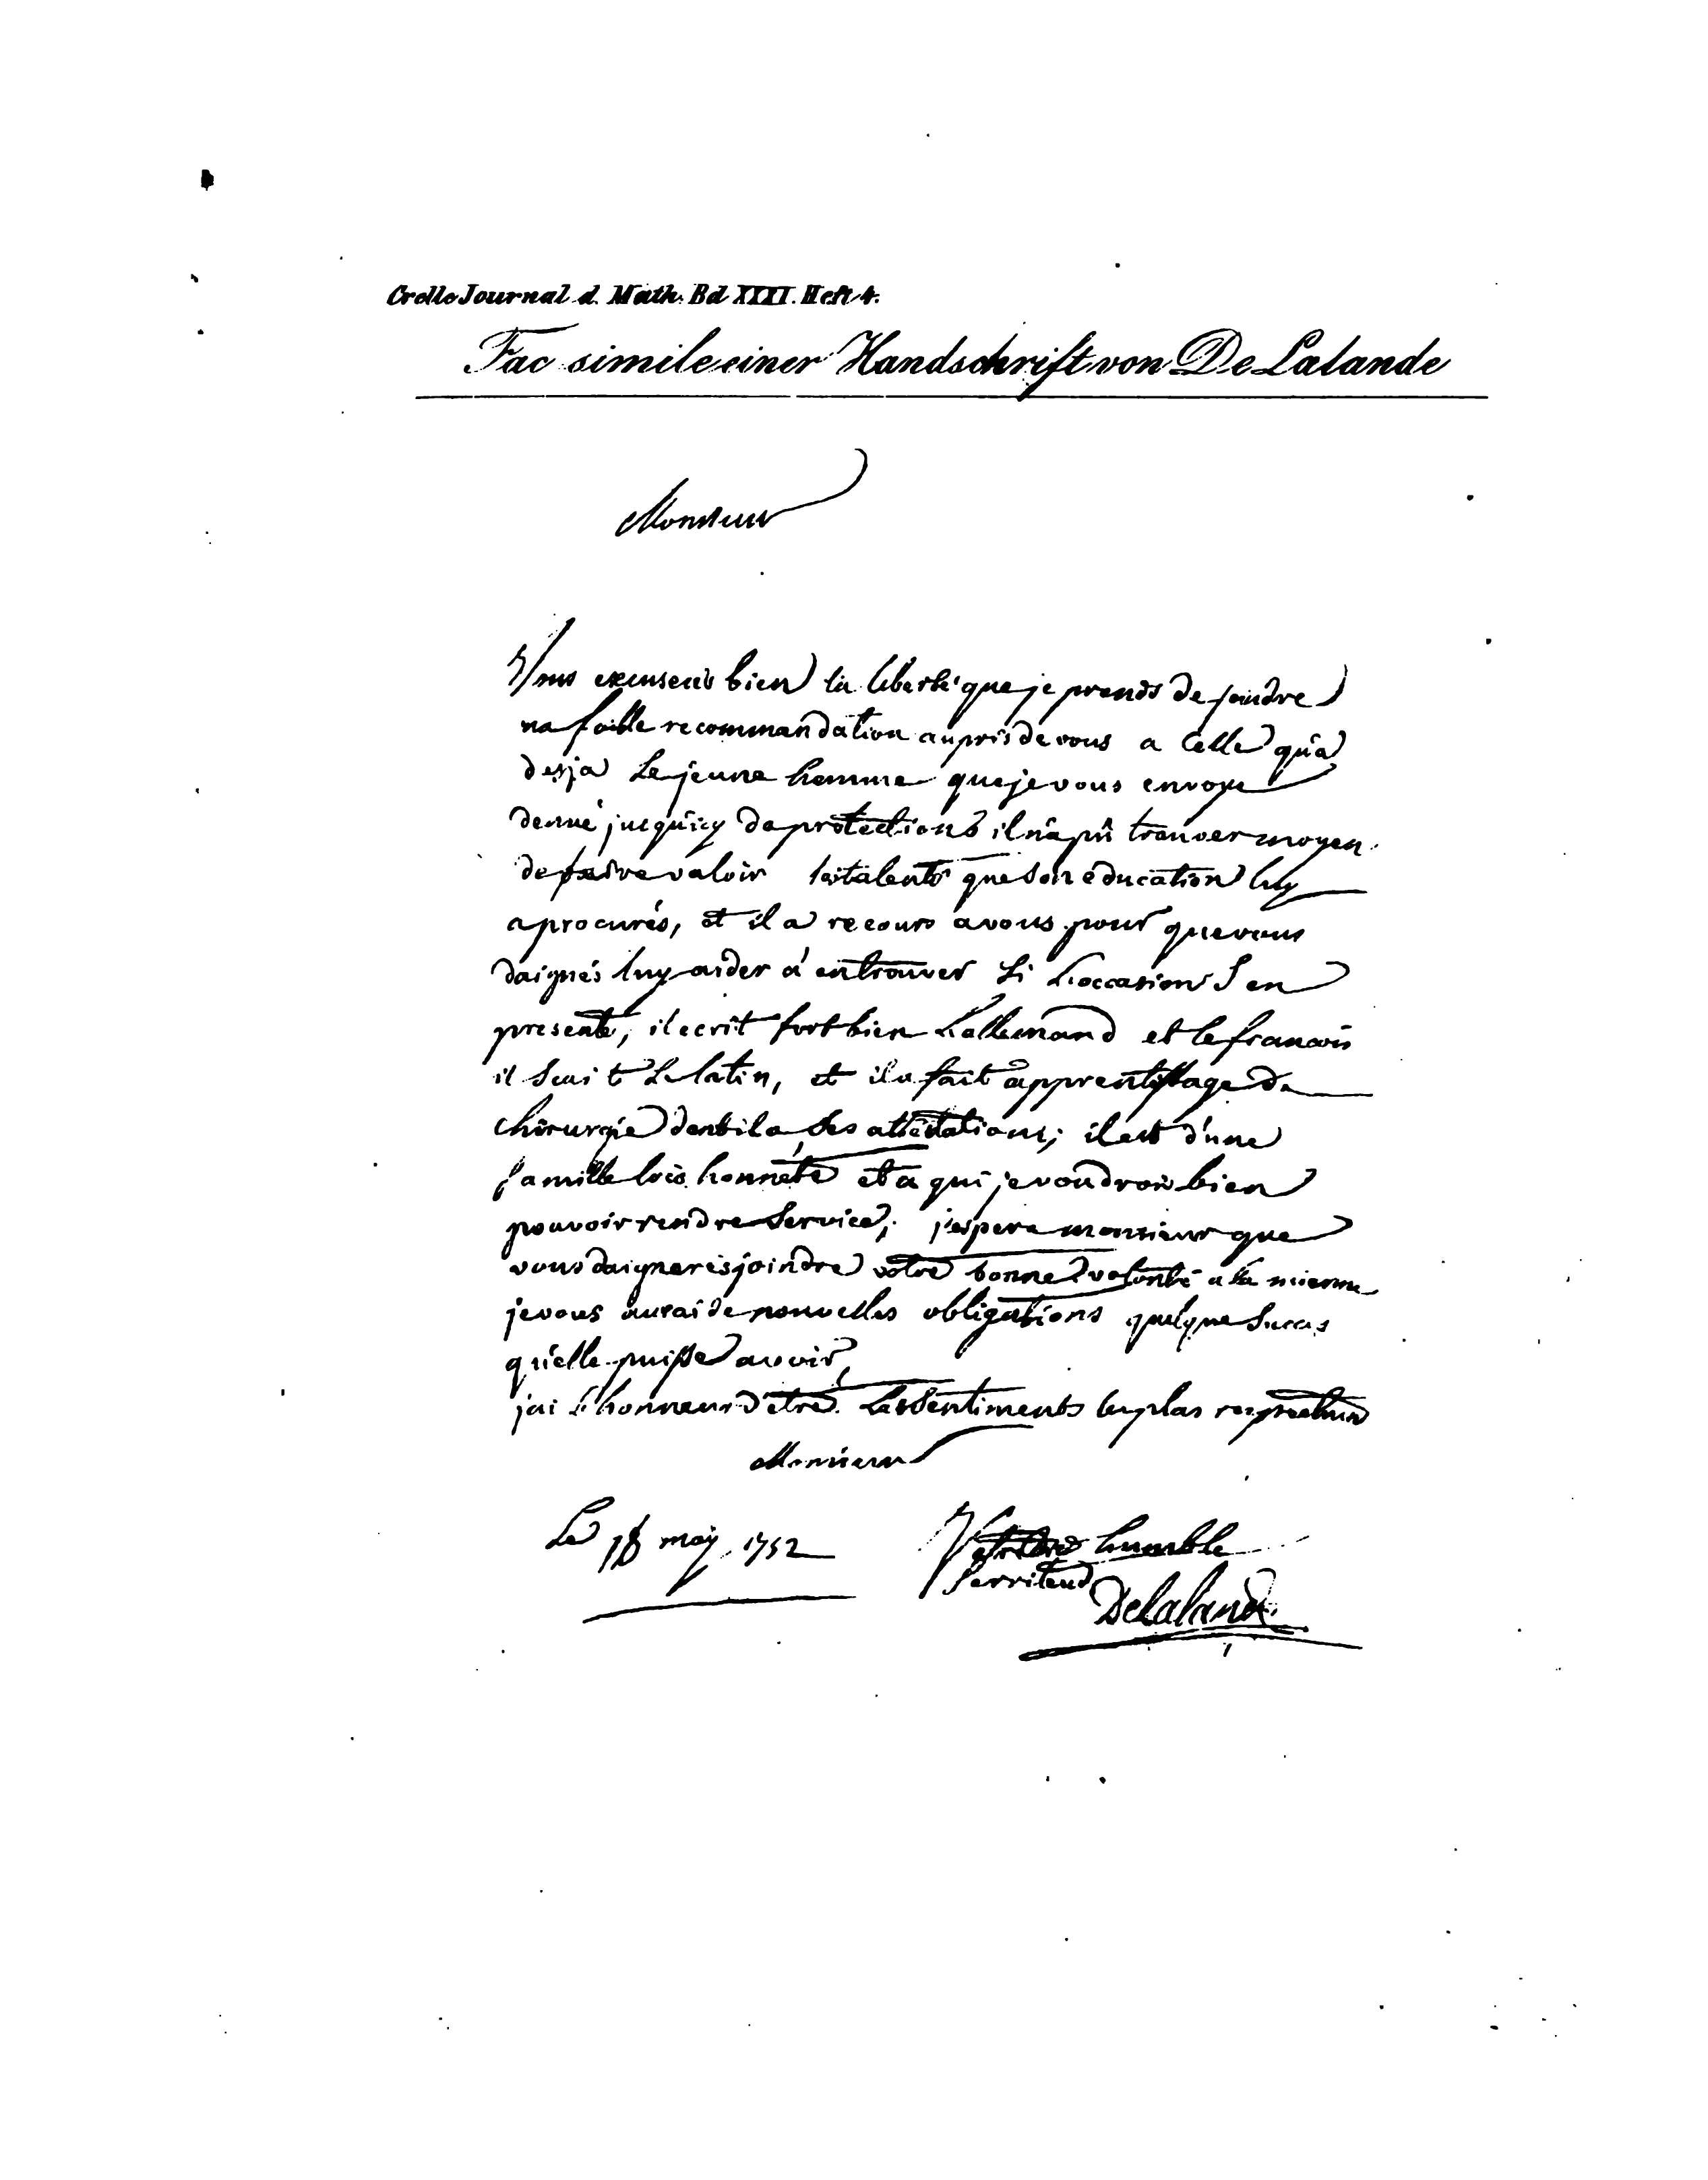 Crelle Journal d. Math. Bd XXXI. Heft 4.
Fac simile einer Handschrift von De Lalande
Monsieur
Vous excuserés bien la liberté que je prends de joindre
ma foible recommandation auprès de vous a celle qu'a
desja le jeune homme que je vous envoye
denué jusqu'icy de protections il n'a pû trouver moyen
de faire valoir les talents que son education luy
a procurés, et il a recours a vous pour que vous
daignés luy aider à en trouver si l'occasion s'en
presente, il ecrit fort bien l'allemand et le francois
il scait le latin, et il a fait apprentissage de
chirurgie dont il a des attestations; il est d'une
famille très honnête et a qui je voudrois bien
pouvoir rendre service; j'espere monsieur que
vous daignerés joindre votre bonne volonté a la mienne
je vous aurai de nouvelles obligations quelque succes
qu'elle puisse avoir,
jai l'honneur d'être les sentiments les plus respectueux
Monsieur
Le 18 may 1752
Votre humble
serviteur
Delalande